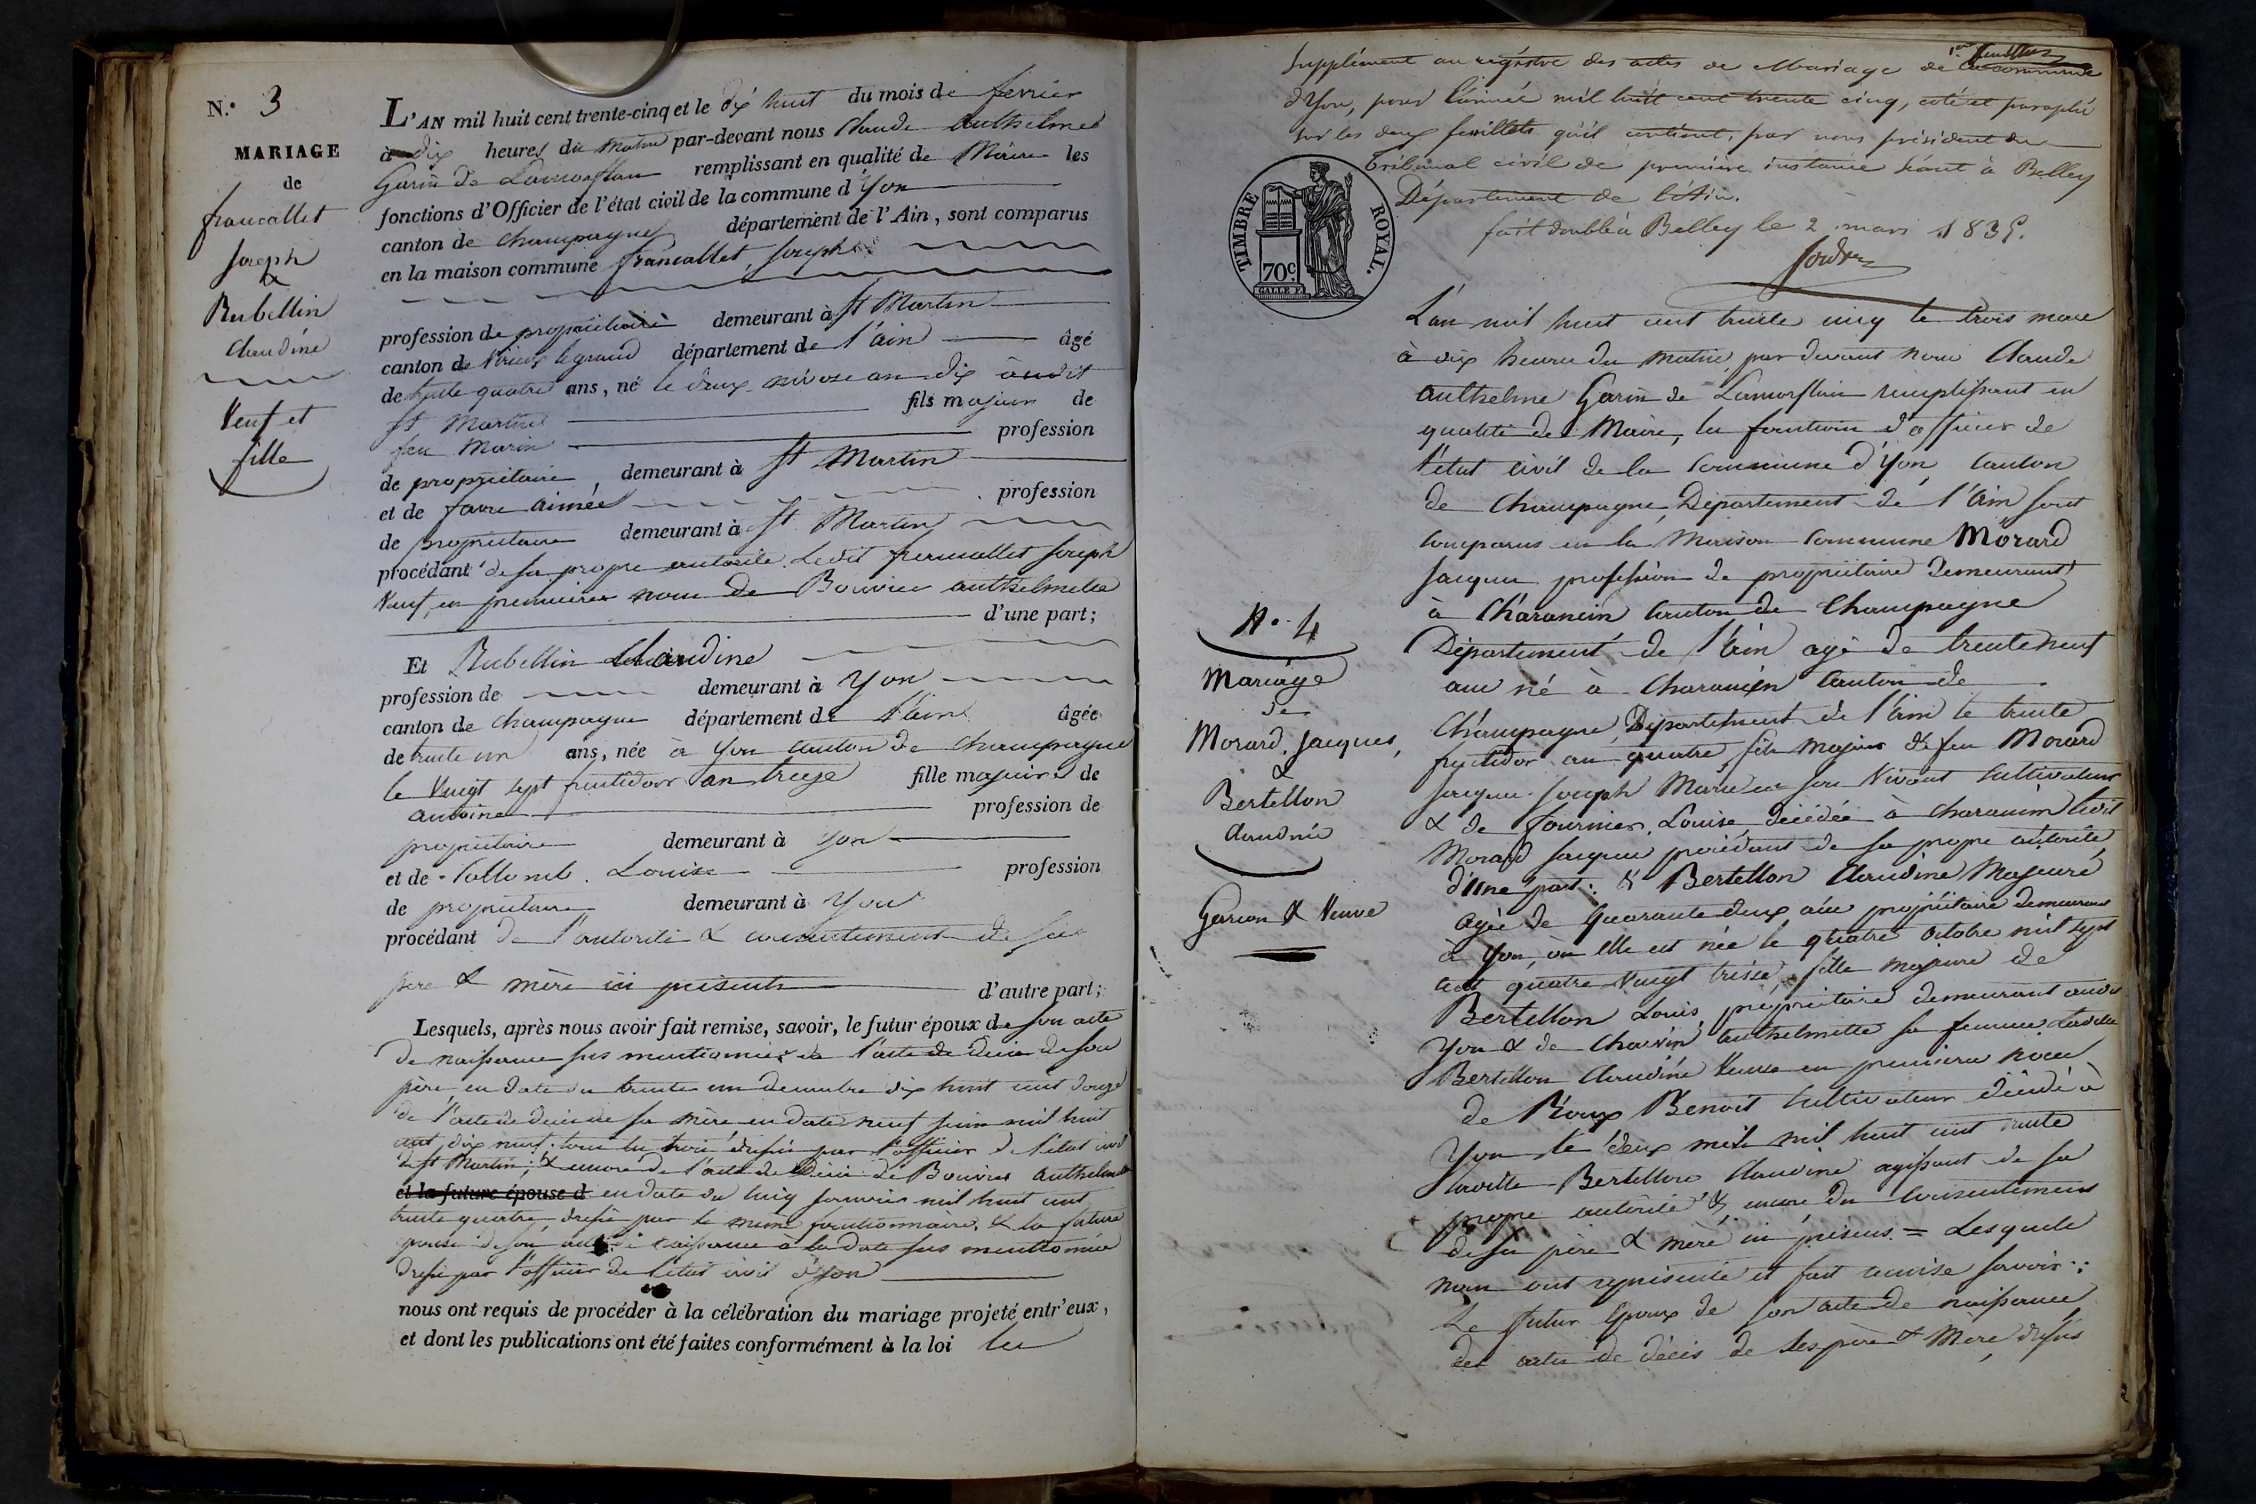 N.° 3
MARIAGE
de
francallet
Joseph
&
Rubellin
Claudine
Veuf et
fille
L'AN mil huit cent trente-cinq et le dix huit du mois de fevrier
à dix heures du matin par-devant nous Claude Anthelme
Garin de Lamorflan remplissant en qualité de Maire les
fonctions d'Officier de l'état civil de la commune d'Yon
canton de Champagne département de l'Ain, sont comparus
en la maison commune francallet, Joseph
profession de propriétaire demeurant à St Martin
canton de Virieu le grand département de l'ain âgé
de trente quatre ans, né le deux nivose an dix audit
St Martin fils majeur de
feu Marin profession
de propriétaire, demeurant à St Martin
et de favre aimée profession
de propriétaire demeurant à St Martin
procédant de sa propre autorité. Ledit francallet Joseph
Veuf en premieres noces de Bouvier anthelmette
d'une part;
Et Rubellin Claudine
profession de demeurant à Yon
canton de Champagne département de l'ain âgée
de trente un ans, née à Yon canton de Champagne
le Vingt sept fructidor an treize fille majeure de
antoine profession de
propriétaire demeurant à Yon
et de Collomb. Louise profession
de propriétaire demeurant à Yon
procédant de l'autorité & consentement de ses
père & mère ici présents d'autre part;
Lesquels, après nous avoir fait remise, savoir, le futur époux de son acte
de naissance sus mentionné de l'acte de décès de son
père en date du trente un decembre dix huit cent douze
de l'acte de décès de sa mère en date neuf juin mil huit
cent dix neuf. tous les trois dressés par l'officier de l'état civil
de St Martin; & encore de l'acte de décès de Bouvier Anthelmette
et la future épouse d en date du cinq janvier mil huit cent
trente quatre dressé par le même fonctionnaire. & la future
epouse de son acte de naissance à la date sus mentionnée
dressé par l'officier de l'état civil d'Yon
nous ont requis de procéder à la célébration du mariage projeté entr'eux,
et dont les publications ont été faites conformément à la loi les
1er feuillet
Supplément au régistre des actes de Mariage de la commune
d'Yon, pour l'année mil huit cent trente cinq, coté et paraphé
sur les deux feuillets qu'il contient, par nous président du
Tribunal civil de première instance séant à Belley
Département de l'Ain.
fait double à Belley le 2 mars 1835.
TIMBRE ROYAL.
70c.
L'an mil huit cent trente cinq le trois mars
à dix heures du matin, par devant nous Claude
anthelme Garin de Lamorflan remplissant en
qualité de Maire, les fonctions d'officier de
l'état civil de la Commune d'Yon, Canton
de Champagne, Département de l'ain sont
comparus en la Maison Commune Morard
Jacques profession de propriétaire demeurant
à Charancin Canton de Champagne
Département de l'ain agé de trente neuf
ans né à Charancin Canton de
Champagne, Département de l'ain le trente
fructidor an quatre, fils majeur de feu Morard
Jacques Joseph Marie en son Vivant Cultivateur
& de fournier, Louise décédée à Charancin ledit
Morard Jacques procédant de sa propre autorité
d'une part: & Bertellon Claudine Majeure
agée de Quarante deux ans propriétaire demeurant
à Yon, où elle est née le quatre octobre mil sept
cent quatre Vingt treize, fille majeure de
Bertellon Louis, propriétaire demeurant audit
Yon & de Chauvin anthelmette sa femme. Ladite
Bertellon Claudine Veuve en premieres noces
de Roux Benoit Cultivateur décédé à
Yon le deux mil huit cent trente
Ladite Bertellon Claudine agissant de sa
propre autorité & encore du Consentement
de ses père & mère ici présens. = Lesquels
nous ont représenté et fait remise savoir:
Le futur Epoux de son acte de naissance
des actes de décès de ses père & Mère, dressés
N.° 4
Mariage
de
Morard, Jacques,
&
Bertellon
Claudine
Garçon & Veuve